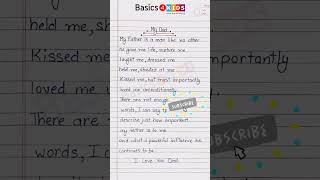 Basics 4 KIDS
My Dad
My Father is a man like no other
he gave me life, nurture me
taught me, dressed me
held me, shouted at me
Kissed me, but most importantly
loved me unconditionally
There are not enough
words, I can say to
describe just how important
my father is to me
and what a powerful influence he
continues to be.
I Love You Dad.
SUBSCRIBE
held me, sh
Kissed me
loved me
There are
words, I c
importantly
SUBSCRIBE